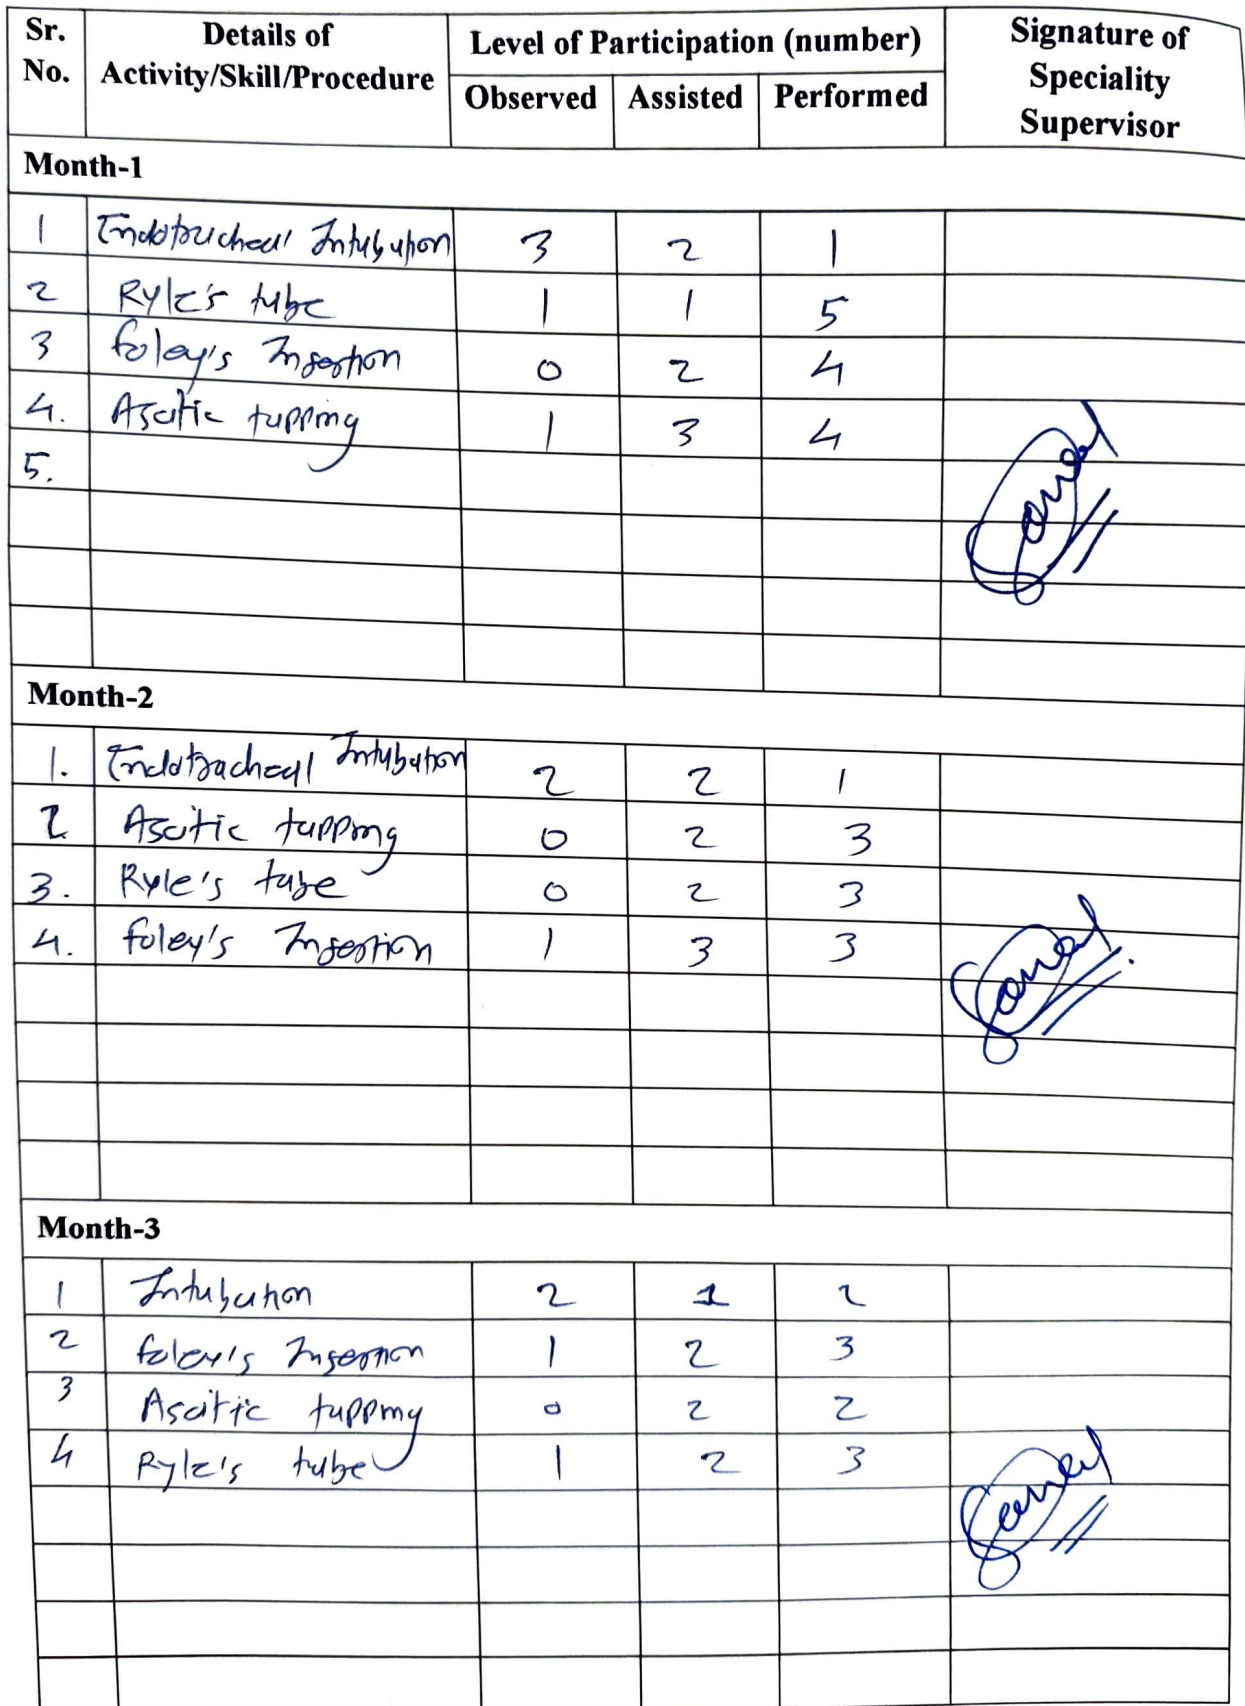 Sr. No. Details of Activity/Skill/Procedure Level of Participation (number) Signature of Speciality Supervisor
Observed Assisted Performed
Month-1
1 Endotracheal Intubation 3 2 1
2 Ryle's tube 1 1 5
3 foley's Insertion 0 2 4
4. Ascitic tapping 1 3 4
5.
Month-2
1. Endotracheal Intubation 2 2 1
2 Ascitic tapping 0 2 3
3. Ryle's tube 0 2 3
4. foley's Insertion 1 3 3
Month-3
1 Intubation 2 1 2
2 foley's Insertion 1 2 3
3 Ascitic tapping 0 2 2
4 Ryle's tube 1 2 3